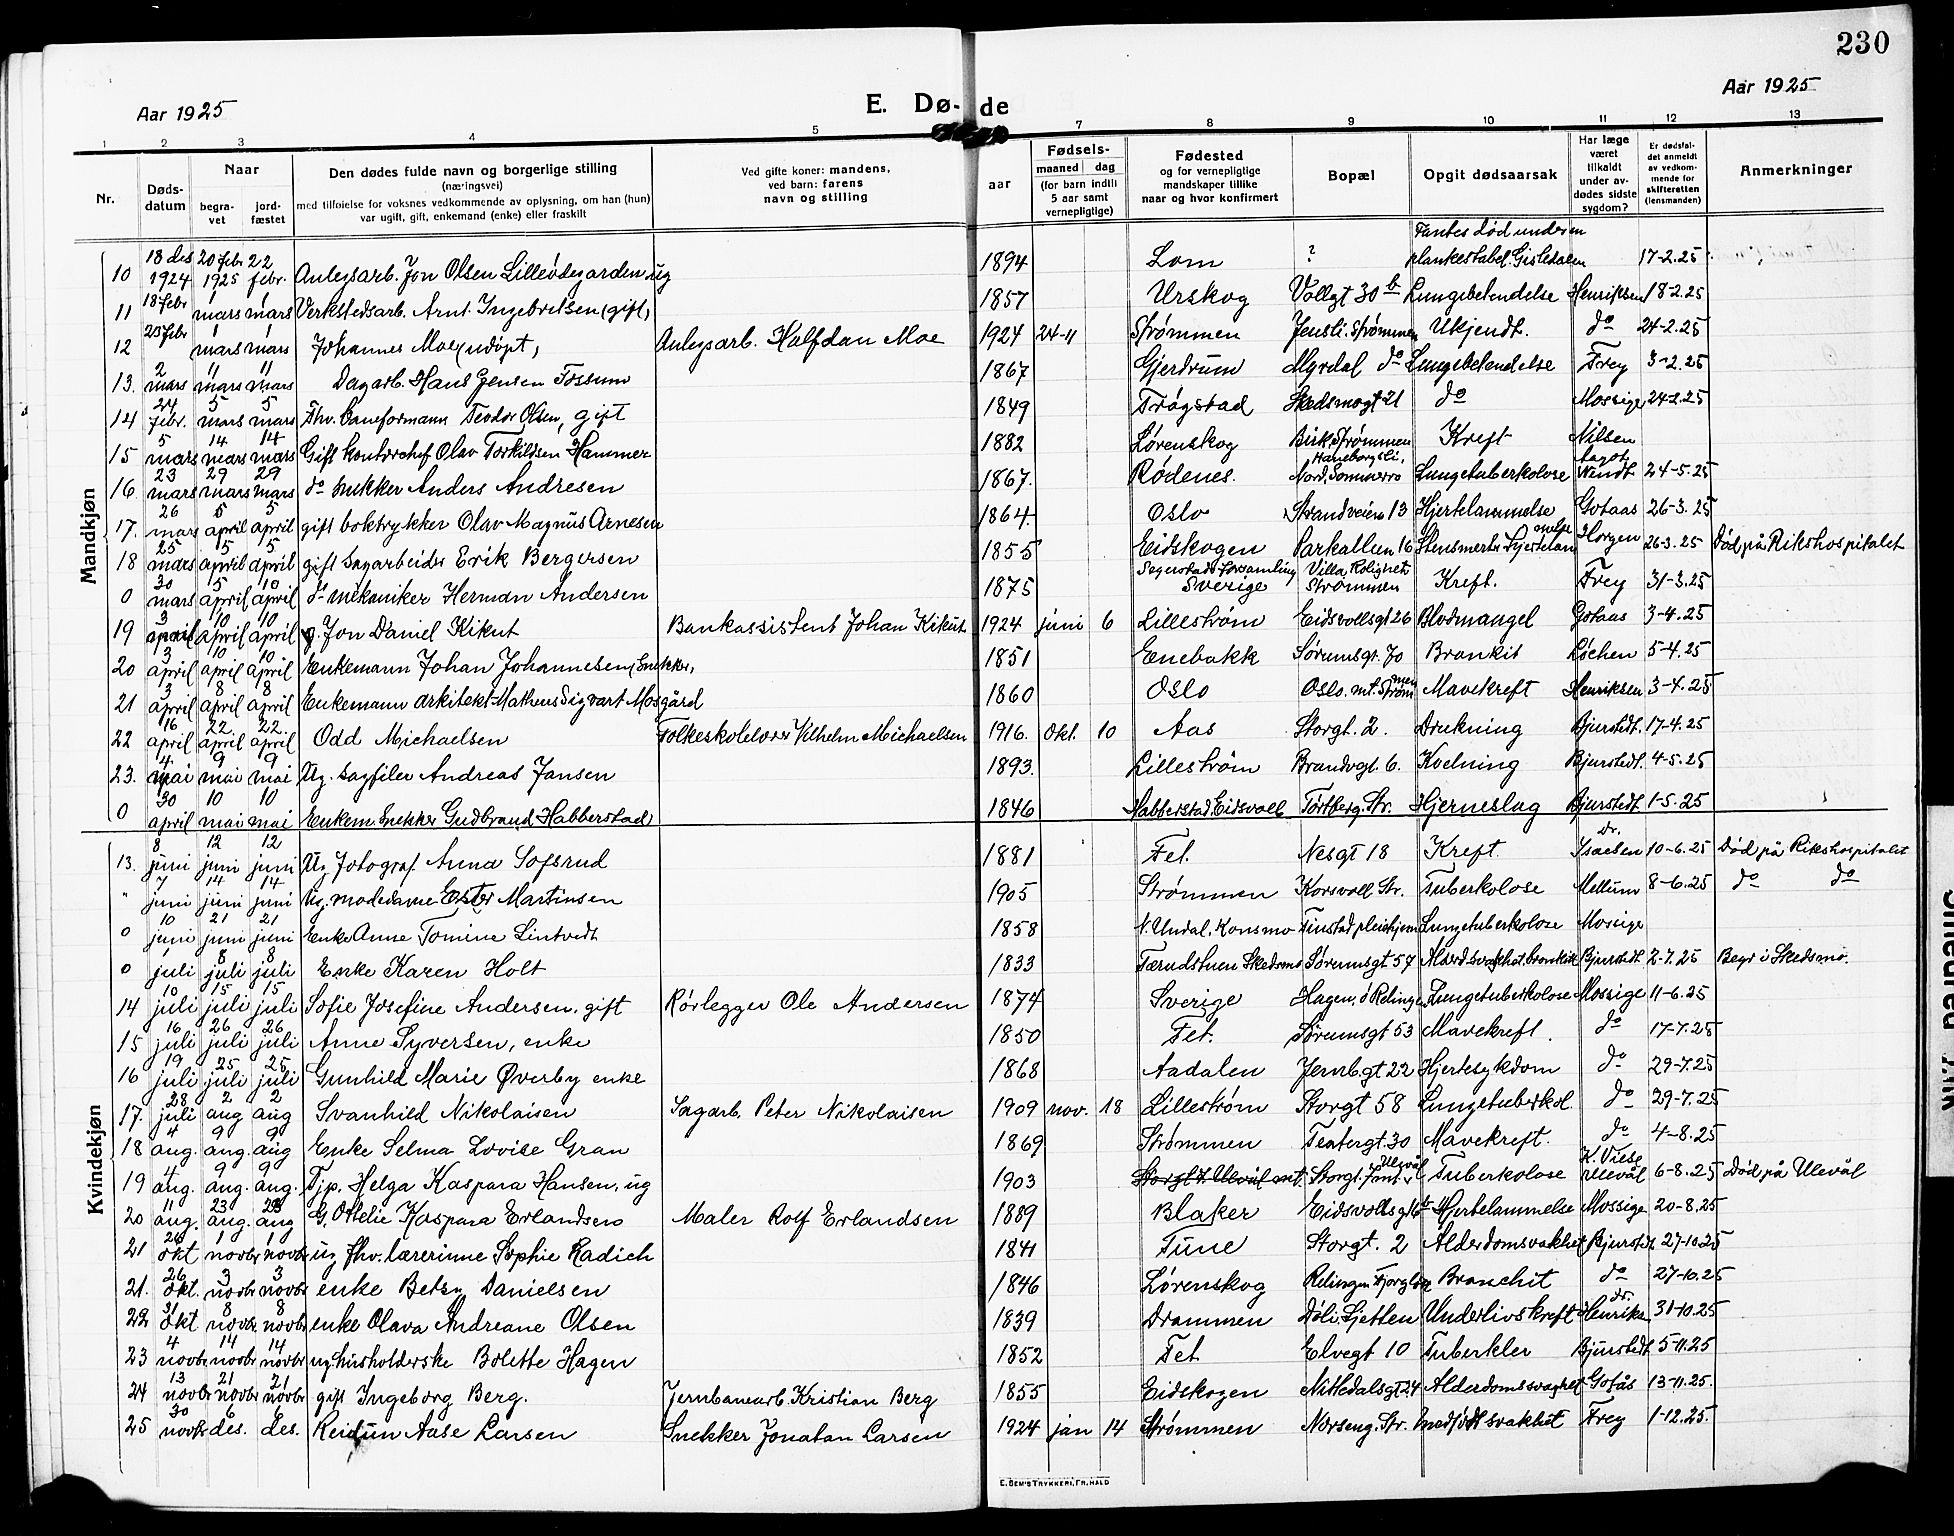 230
Aar 1925
E. Dø-de
Aar 1925
1 2 3 4 5 7 8 9 10 11 12 13
Nr. Døds-datum Naar begra-vet jord-fæstet Den dødes fulde navn og borgerlige stilling (næringsvei) med tilføielse for voksnes vedkommende av oplysning, om han (hun) var ugift, gift, enkemand (enke) eller fraskilt Ved gifte koner: mandens, ved barn: farens navn og stilling aar Fødsels- maaned dag (for barn indtil 5 aar samt vernepligtige) Fødested og for vernepligtige mandskaper tillike naar og hvor konfirmert Bopæl Opgit dødsaarsak Har læge været tilkaldt under av-dødes sidste sygdom? Er dødsfal-det anmeldt av vedkom-mende for skifteretten (lensmanden) Anmerkninger
Mandkjøn
10 18 des 1924 20 febr 1925 22 febr. Anlegsarb. Jon Olsen Lilleødegarden ug 1894 Lom ? Fantes død under en plankestabel. Gisledalen 17-2.25
11 18 febr 1 mars 1 mars Verkstedsarb. Arnt Ingebretsen (gift) 1857 Urskog Vollgt 30 b Lungebetendelse Henriksen 18-2.25
12 23 febr 1 mars 1 mars Johannes Moe (udøpt) Anlegsarb. Halfdan Moe 1924 24-11 Strømmen Jensli. Strømmen Ukjendt. do 24-2.25
13. 2 mars 11 mars 11 mars Dagarb. Hans Jensen Fossum 1867 Gjerdrum Myrdal do Lungebetendelse Frey 3-2.25
14 24 febr. 5 mars 5 mars Fhv. baneformann Teodor Olsen, gift 1849 Trøgstad Skedsmogt 21 do Mossige 24-2.25
15 5 mars 14 mars 14 mars Gift kontorchef Olav Torkildsen Hammer 1882 Lørenskog Birk. Strømmen Kreft Nilsen
16. 23 mars 29 mars 29 mars do snekker Anders Andresen 1867. Rødenes. Haneborgsli, Nord. Sommerro Lungetuberkolose Aagot Wendt 24-5.25
17. 26 mars 5 april 5 april gift boktrykker Olav Magnus Arnesen 1864. Oslo Strandveien 13 Hjertelammelse Gotaas 26-3.25
18 25 mars 5 april 5 april gift sagarbeider Erik Bergersen 1855 Eidskogen Parkalleen 16 Hjertelammelse Horgen 26-3.25 Død på Rikshospitalet
0 30 mars 5 april 10 april do mekaniker Herman Andersen 1875 Segerstads forsamling Sverige Villa Rolighet Strømmen Kreft. Frey 31-3.25
19 3 april 10 april 10 april g. Jon Daniel Kikut Bankassistent Johan Kikut 1924 juni 6 Lillestrøm Eidsvollsgt 26 Blodmangel Gotaas 3-4.25
20 3 april 10 april 10 april Enkemann Johan Johannesen (Snekker) 1851 Enebakk Sørumsgt. 70 Bronkit Løchen 5-4.25
21 3 april 8 april 8 april Enkemann arkitekt Matheus Sigvart Mosgård 1860 Oslo Oslo. mt. Strømmen Mavekreft Henriksen 3-4.25
22 16 april 22 april 22 april Odd Michaelsen Folkeskolelærer Vilhelm Michaelsen 1916. Okt. 10 Aas Storgt. 2. Drukning Bjurstedt. 17-4.25
23. 4 mai 9 mai 9 mai Ug. sagfiler Andreas Jansen 1893. Lillestrøm Brandvgt. 6. Kvelning Bjurstedt. 4-5.25
0 30 april 10 mai 10 mai Enkem. Snekker Gudbrand Habberstad 1846 Habberstad. Eidsvoll Torfberg. Str. Hjerneslag Bjurstedt 1-5.25
Kvindekjøn
13. 8 juni 12 juni 12 juni Ug. fotograf Anna Sofsrud 1881 Fet. Nesgt 18 Kreft. Dr. Isachsen 10-6.25 Død på Rikshospitalet
" 7 juni 14 juni 14 juni Ug. modedame Ester Martinsen 1905 Strømmen Korsvoll Str. Tuberkolose Mellum 8-6.25 do do
0 10 juni 21 juni 21 juni Enke Anne Tomine Lintvedt 1858 N. Undal, Konsmo Finstad pleiehjem Lungetuberkolose Mossige
0 1 juli 8 juli 8 juli Enke Karen Holt 1833 Færudstuen Skedsmo Sørumsgt 57 Alderdsvakhet, bronkit Bjurstedt. 2-7.25 Begr i Skedsmo.
14 10 juli 15 juli 15 juli Sofie Josefine Andersen, gift Rørlegger Ole Andersen 1874 Sverige Hagen, ø Relingen Lungetuberkolose Mossige 11-6.25
15 16 juli 26 juli 26 juli Anne Syversen, enke 1850 Fet. Sørumsgt 53 Mavekreft. do 17-7.25
16 19 juli 25 juli 25 juli Gunhild Marie Øverby enke 1868 Aadalen Jernb.gt 22 Hjertesykdom do 29-7.25
17. 28 juli 2 aug 2 aug Svanhild Nikolaisen Sagarb. Peter Nikolaisen 1909 nov. 18 Lillestrøm Storgt 58 Lungetuberkol. do 29-7.25
18 4 aug. 9 aug. 9 aug Enke Selma Lovise Gran 1869 Strømmen Teatergt. 30 Mavekreft. do 4-8.25
19 4 aug. 9 aug. 9 aug. Tjp. Helga Kaspara Hansen, ug 1903 Storgt 7. Ullevål mt. Storgt. 7 mt. Ulevål Tuberkolose K. Viese Ulevål 6-8.25 Død på Ulevål
20 11 aug. 23 aug. 23 aug G. Ottelie Kaspara Erlandsen Maler Rolf Erlandsen 1889 Blaker Eidsvollsgt 6 b Hjertelammelse Mossige 20-8.25
21 26 okt 1 novbr 1 novbr ug fhv. lærerinne Sophie Radich 1841 Tune Storgt. 2 Alderdomsvakhet Bjurstedt 27-10.25
21. 26 okt. 3 novbr 3 novbr enke Betsy Danielsen 1846 Lørenskog Relingen Branchit do 27-10.25
22 31 okt 8 novbr 8 novbr enke Olava Andreane Olsen 1839 Drammen Døli, Sjetten Underlivskreft Dr. Henriksen 31-10.25
23 4 novbr 14 novbr 14 novbr ug husholderske Bolette Hagen 1852 Fet Elvegt 10 Tuberkler Bjurstedt 5-11.25
24 13 novbr 21 novbr 21 novbr gift Ingeborg Berg. Jernbanearb. Kristian Berg 1855 Eidskogen Nittedalsgt 24 Alderdomssvaghet Gotås 13-11.25.
25 30 novbr 6 des. 6 des. Reidun Aase Larsen Snekker Jonatan Larsen 1924 jan 14 Strømmen Norseng. Str. medfødt svakhet Frey 1-12.25.
E. SEM'S TRYKKERI, FR.HALD